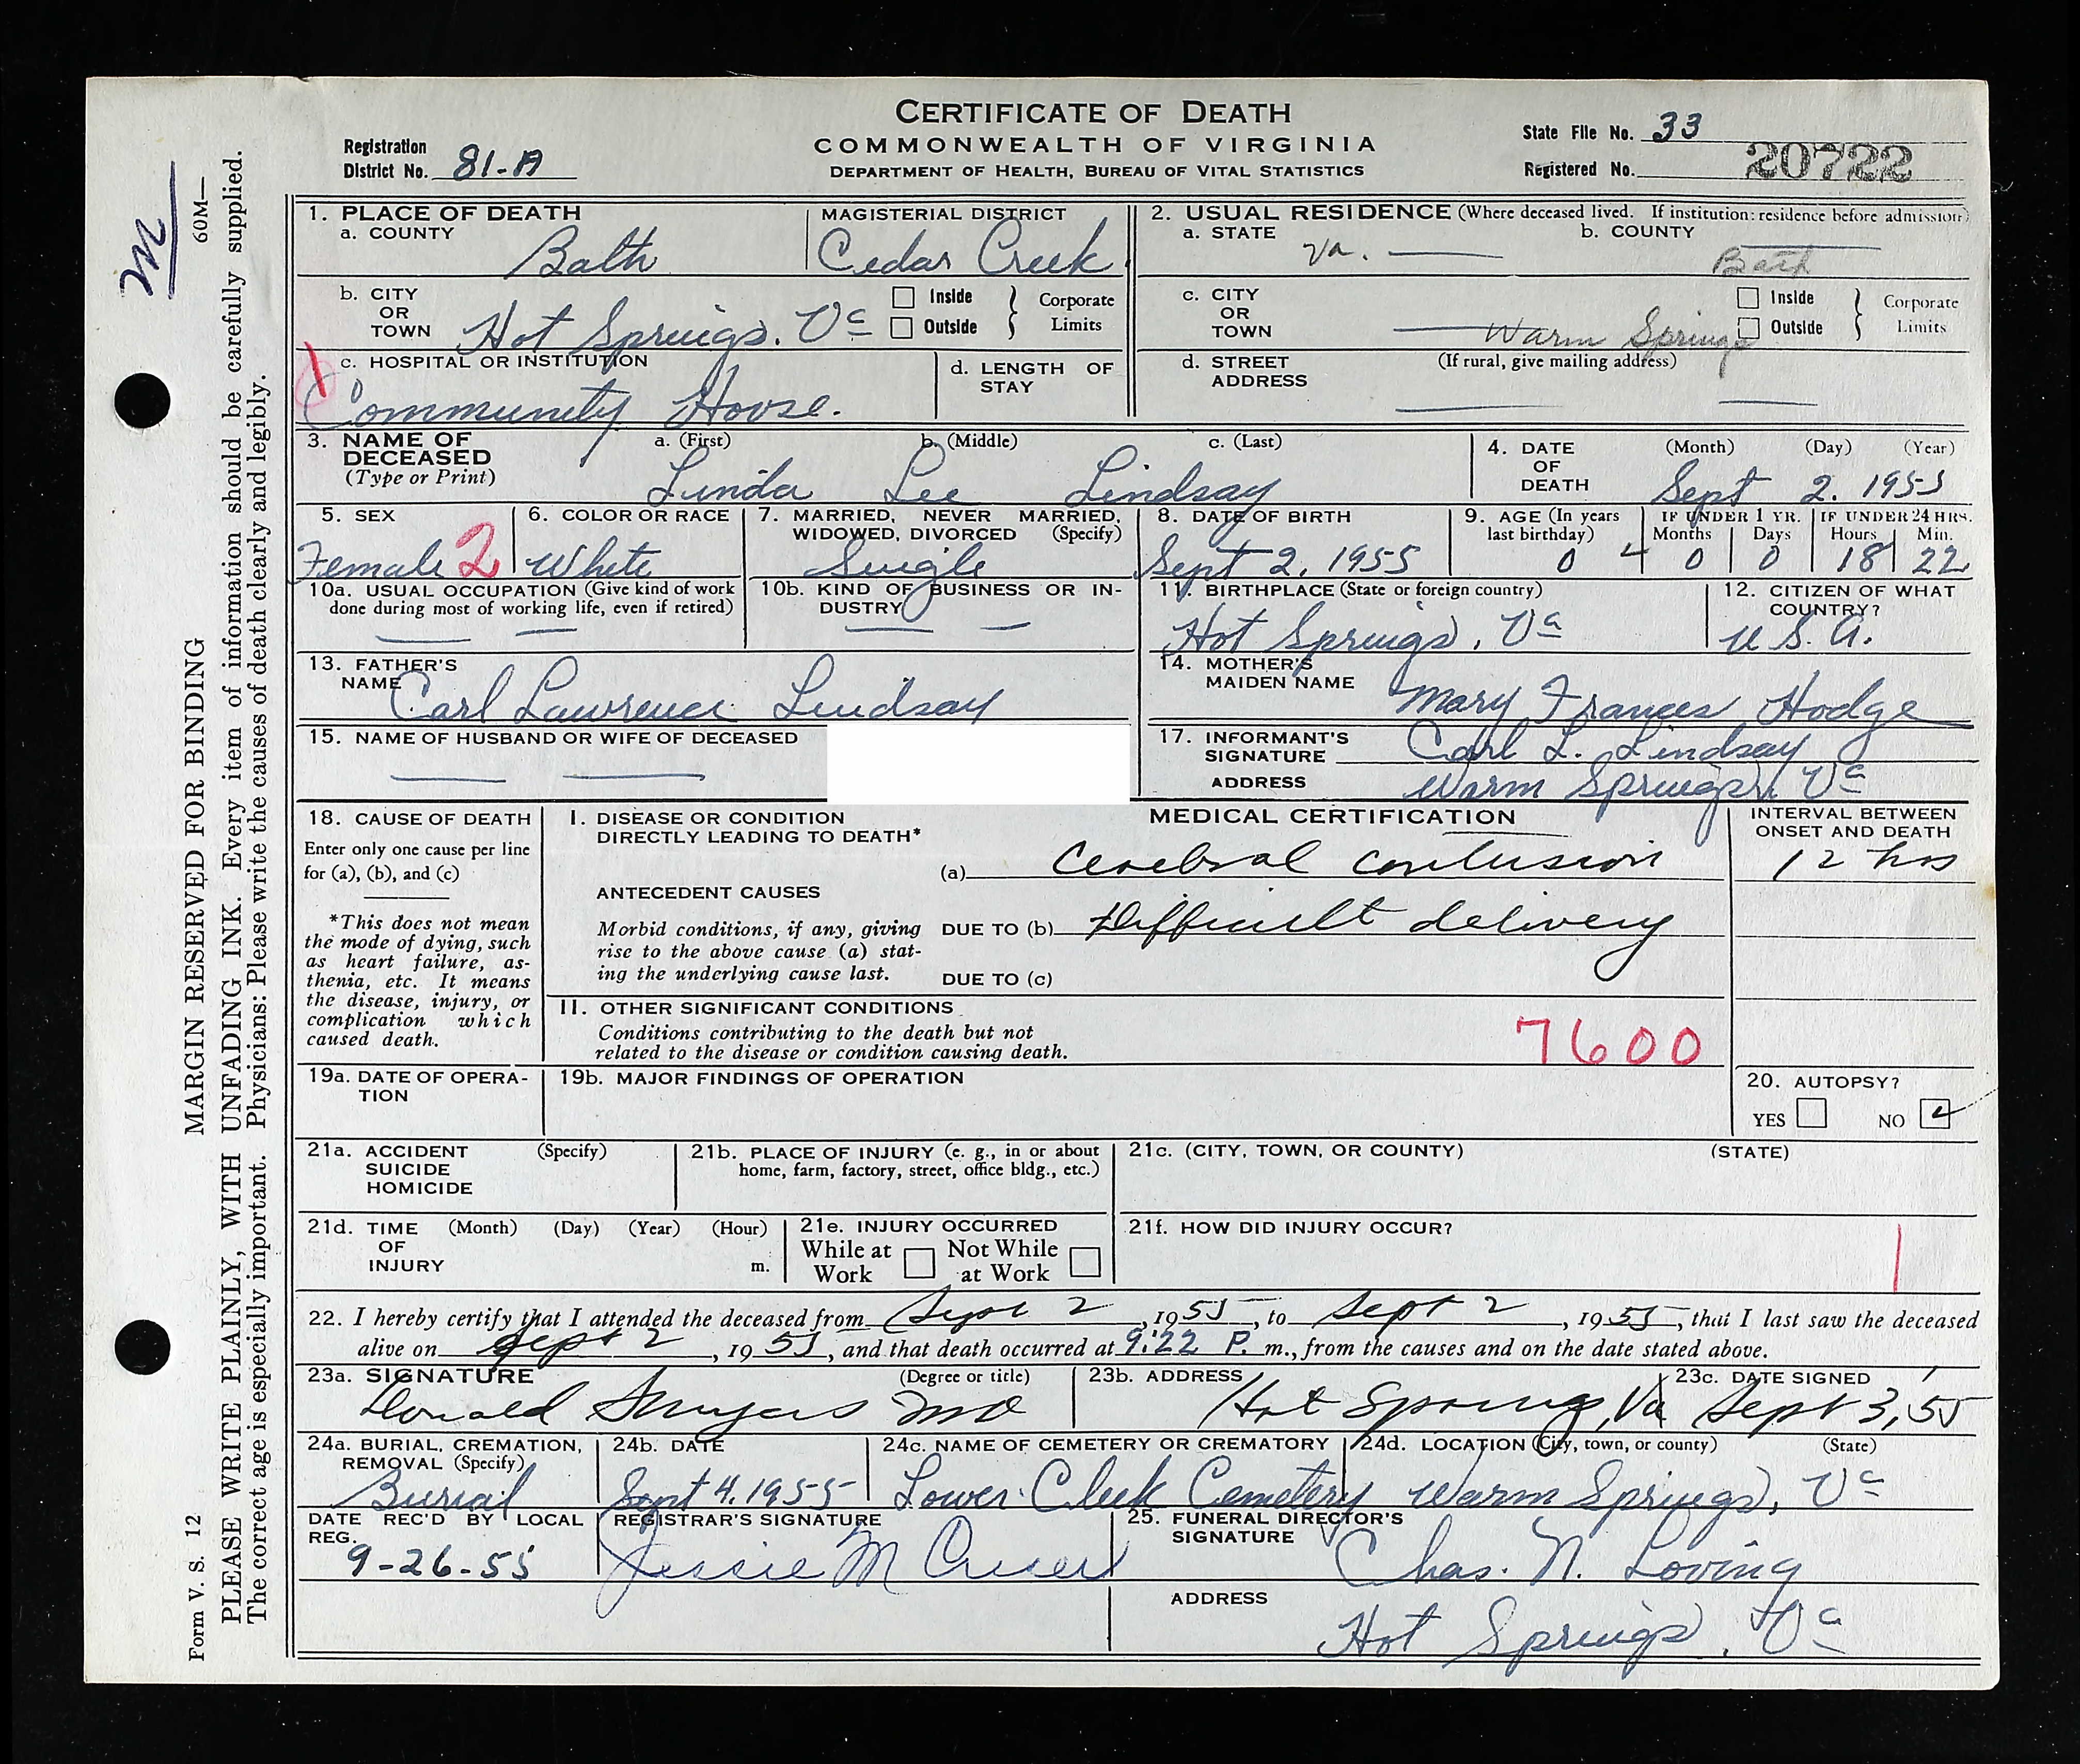 CERTIFICATE OF DEATH
COMMONWEALTH OF VIRGINIA
DEPARTMENT OF HEALTH, BUREAU OF VITAL STATISTICS
Registration District No. 81-A
State File No. 33
Registered No. 20722
M
60M—
MARGIN RESERVED FOR BINDING
PLEASE WRITE PLAINLY, WITH UNFADING INK. Every item of information should be carefully supplied.
The correct age is especially important. Physicians: Please write the causes of death clearly and legibly.
Form V. S. 12
1. PLACE OF DEATH
a. COUNTY Bath
MAGISTERIAL DISTRICT Cedar Creek
2. USUAL RESIDENCE (Where deceased lived. If institution: residence before admission)
a. STATE Va.
b. COUNTY Bath
b. CITY OR TOWN Hot Springs, Va
Inside
Outside
Corporate Limits
c. CITY OR TOWN Warm Springs
Inside
Outside
Corporate Limits
1
c. HOSPITAL OR INSTITUTION
Community House.
d. LENGTH OF STAY
d. STREET ADDRESS
(If rural, give mailing address)
3. NAME OF DECEASED
(Type or Print)
a. (First) b. (Middle) c. (Last)
Linda Lee Lindsay
4. DATE OF DEATH
(Month) (Day) (Year)
Sept 2. 1955
5. SEX
Female 2
6. COLOR OR RACE
White
7. MARRIED, NEVER MARRIED, WIDOWED, DIVORCED (Specify)
Single
8. DATE OF BIRTH
Sept 2, 1955
9. AGE (In years last birthday)
0
IF UNDER 1 YR.
Months Days
0 0
IF UNDER 24 HRS.
Hours Min.
18 22
10a. USUAL OCCUPATION (Give kind of work done during most of working life, even if retired)
10b. KIND OF BUSINESS OR INDUSTRY
11. BIRTHPLACE (State or foreign country)
Hot Springs, Va
12. CITIZEN OF WHAT COUNTRY?
U.S.A.
13. FATHER'S NAME
Carl Lawrence Lindsay
14. MOTHER'S MAIDEN NAME
Mary Frances Hodge
15. NAME OF HUSBAND OR WIFE OF DECEASED
17. INFORMANT'S SIGNATURE Carl L. Lindsay
ADDRESS Warm Springs, Va
18. CAUSE OF DEATH
Enter only one cause per line
for (a), (b), and (c)
*This does not mean
the mode of dying, such
as heart failure, as-
thenia, etc. It means
the disease, injury, or
complication which
caused death.
MEDICAL CERTIFICATION
INTERVAL BETWEEN ONSET AND DEATH
I. DISEASE OR CONDITION
DIRECTLY LEADING TO DEATH*
(a) Cerebral contusion
12 hrs
ANTECEDENT CAUSES
Morbid conditions, if any, giving
rise to the above cause (a) stat-
ing the underlying cause last.
DUE TO (b) Difficult delivery
DUE TO (c)
II. OTHER SIGNIFICANT CONDITIONS
Conditions contributing to the death but not
related to the disease or condition causing death.
7600
19a. DATE OF OPERA-
TION
19b. MAJOR FINDINGS OF OPERATION
20. AUTOPSY?
YES NO
21a. ACCIDENT (Specify)
SUICIDE
HOMICIDE
21b. PLACE OF INJURY (e. g., in or about
home, farm, factory, street, office bldg., etc.)
21c. (CITY, TOWN, OR COUNTY) (STATE)
21d. TIME OF INJURY (Month) (Day) (Year) (Hour)
m.
21e. INJURY OCCURRED
While at Work
Not While at Work
21f. HOW DID INJURY OCCUR?
1
22. I hereby certify that I attended the deceased from Sept 2, 1955, to Sept 2, 1955, that I last saw the deceased
alive on Sept 2, 1955, and that death occurred at 9:22 P. m., from the causes and on the date stated above.
23a. SIGNATURE (Degree or title)
Donald MD
23b. ADDRESS
Hot Springs, Va
23c. DATE SIGNED
Sept 3, '55
24a. BURIAL, CREMATION,
REMOVAL (Specify)
Burial
24b. DATE
Sept 4, 1955
24c. NAME OF CEMETERY OR CREMATORY
Lower Cleek Cemetery
24d. LOCATION (City, town, or county) (State)
Warm Springs, Va
DATE REC'D BY LOCAL REG.
9-26-55
REGISTRAR'S SIGNATURE
Jessie M
25. FUNERAL DIRECTOR'S SIGNATURE
Chas. N. Loving
ADDRESS
Hot Springs, Va